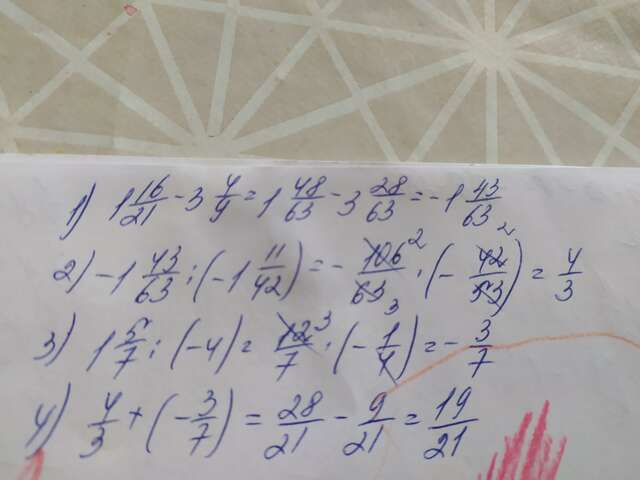 1) 1 16/21 - 3 4/9 = 1 48/63 - 3 28/63 = -1 43/63
2) -1 43/63 : (-1 11/42) = - 106 2/63 3 · (- 42 2/53) = 4/3
3) 1 5/7 : (-4) = 12 3/7 · (- 1/4) = - 3/7
4) 4/3 + (- 3/7) = 28/21 - 9/21 = 19/21